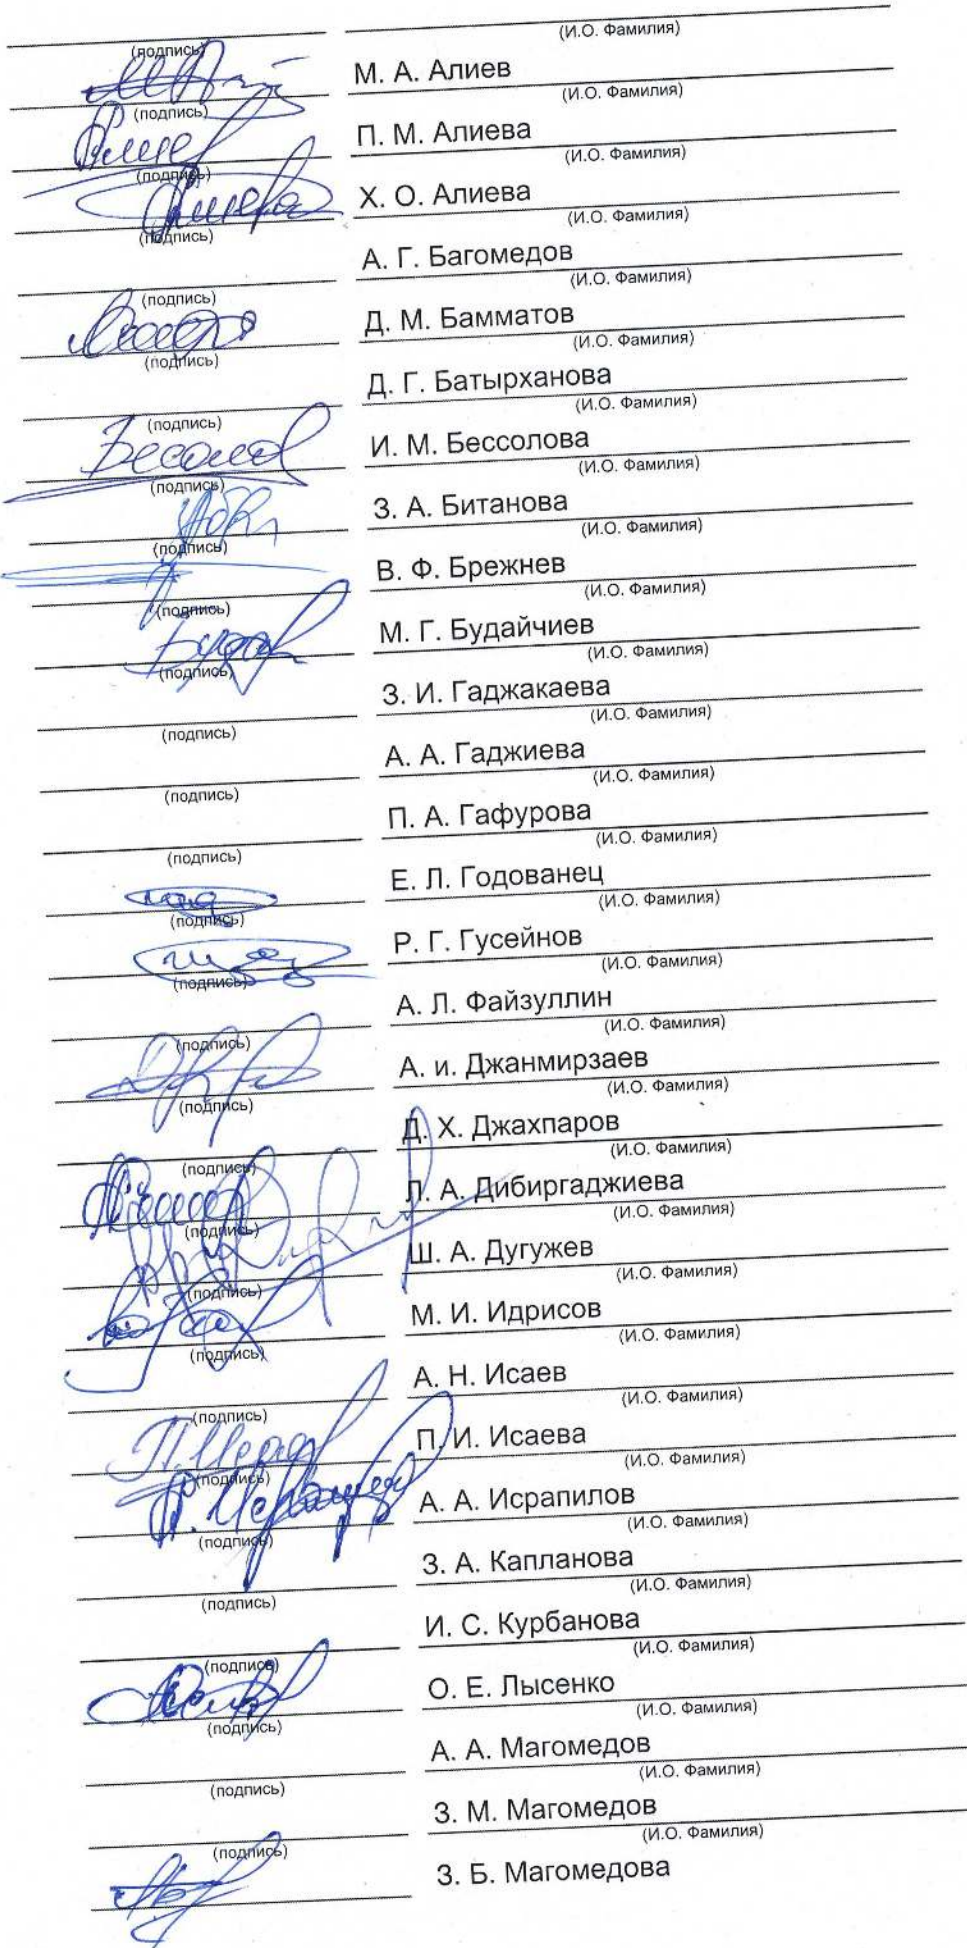 (подпись) (И.О. Фамилия)
М. А. Алиев
(подпись) (И.О. Фамилия)
П. М. Алиева
(подпись) (И.О. Фамилия)
Х. О. Алиева
(подпись) (И.О. Фамилия)
А. Г. Багомедов
(подпись) (И.О. Фамилия)
Д. М. Бамматов
(подпись) (И.О. Фамилия)
Д. Г. Батырханова
(подпись) (И.О. Фамилия)
И. М. Бессолова
(подпись) (И.О. Фамилия)
З. А. Битанова
(подпись) (И.О. Фамилия)
В. Ф. Брежнев
(подпись) (И.О. Фамилия)
М. Г. Будайчиев
(подпись) (И.О. Фамилия)
З. И. Гаджакаева
(подпись) (И.О. Фамилия)
А. А. Гаджиева
(подпись) (И.О. Фамилия)
П. А. Гафурова
(подпись) (И.О. Фамилия)
Е. Л. Годованец
(подпись) (И.О. Фамилия)
Р. Г. Гусейнов
(подпись) (И.О. Фамилия)
А. Л. Файзуллин
(подпись) (И.О. Фамилия)
А. и. Джанмирзаев
(подпись) (И.О. Фамилия)
Д. Х. Джахпаров
(подпись) (И.О. Фамилия)
Л. А. Дибиргаджиева
(подпись) (И.О. Фамилия)
Ш. А. Дугужев
(подпись) (И.О. Фамилия)
М. И. Идрисов
(подпись) (И.О. Фамилия)
А. Н. Исаев
(подпись) (И.О. Фамилия)
П. И. Исаева
(подпись) (И.О. Фамилия)
А. А. Исрапилов
(подпись) (И.О. Фамилия)
З. А. Капланова
(подпись) (И.О. Фамилия)
И. С. Курбанова
(подпись) (И.О. Фамилия)
О. Е. Лысенко
(подпись) (И.О. Фамилия)
А. А. Магомедов
(подпись) (И.О. Фамилия)
З. М. Магомедов
(подпись) (И.О. Фамилия)
З. Б. Магомедова